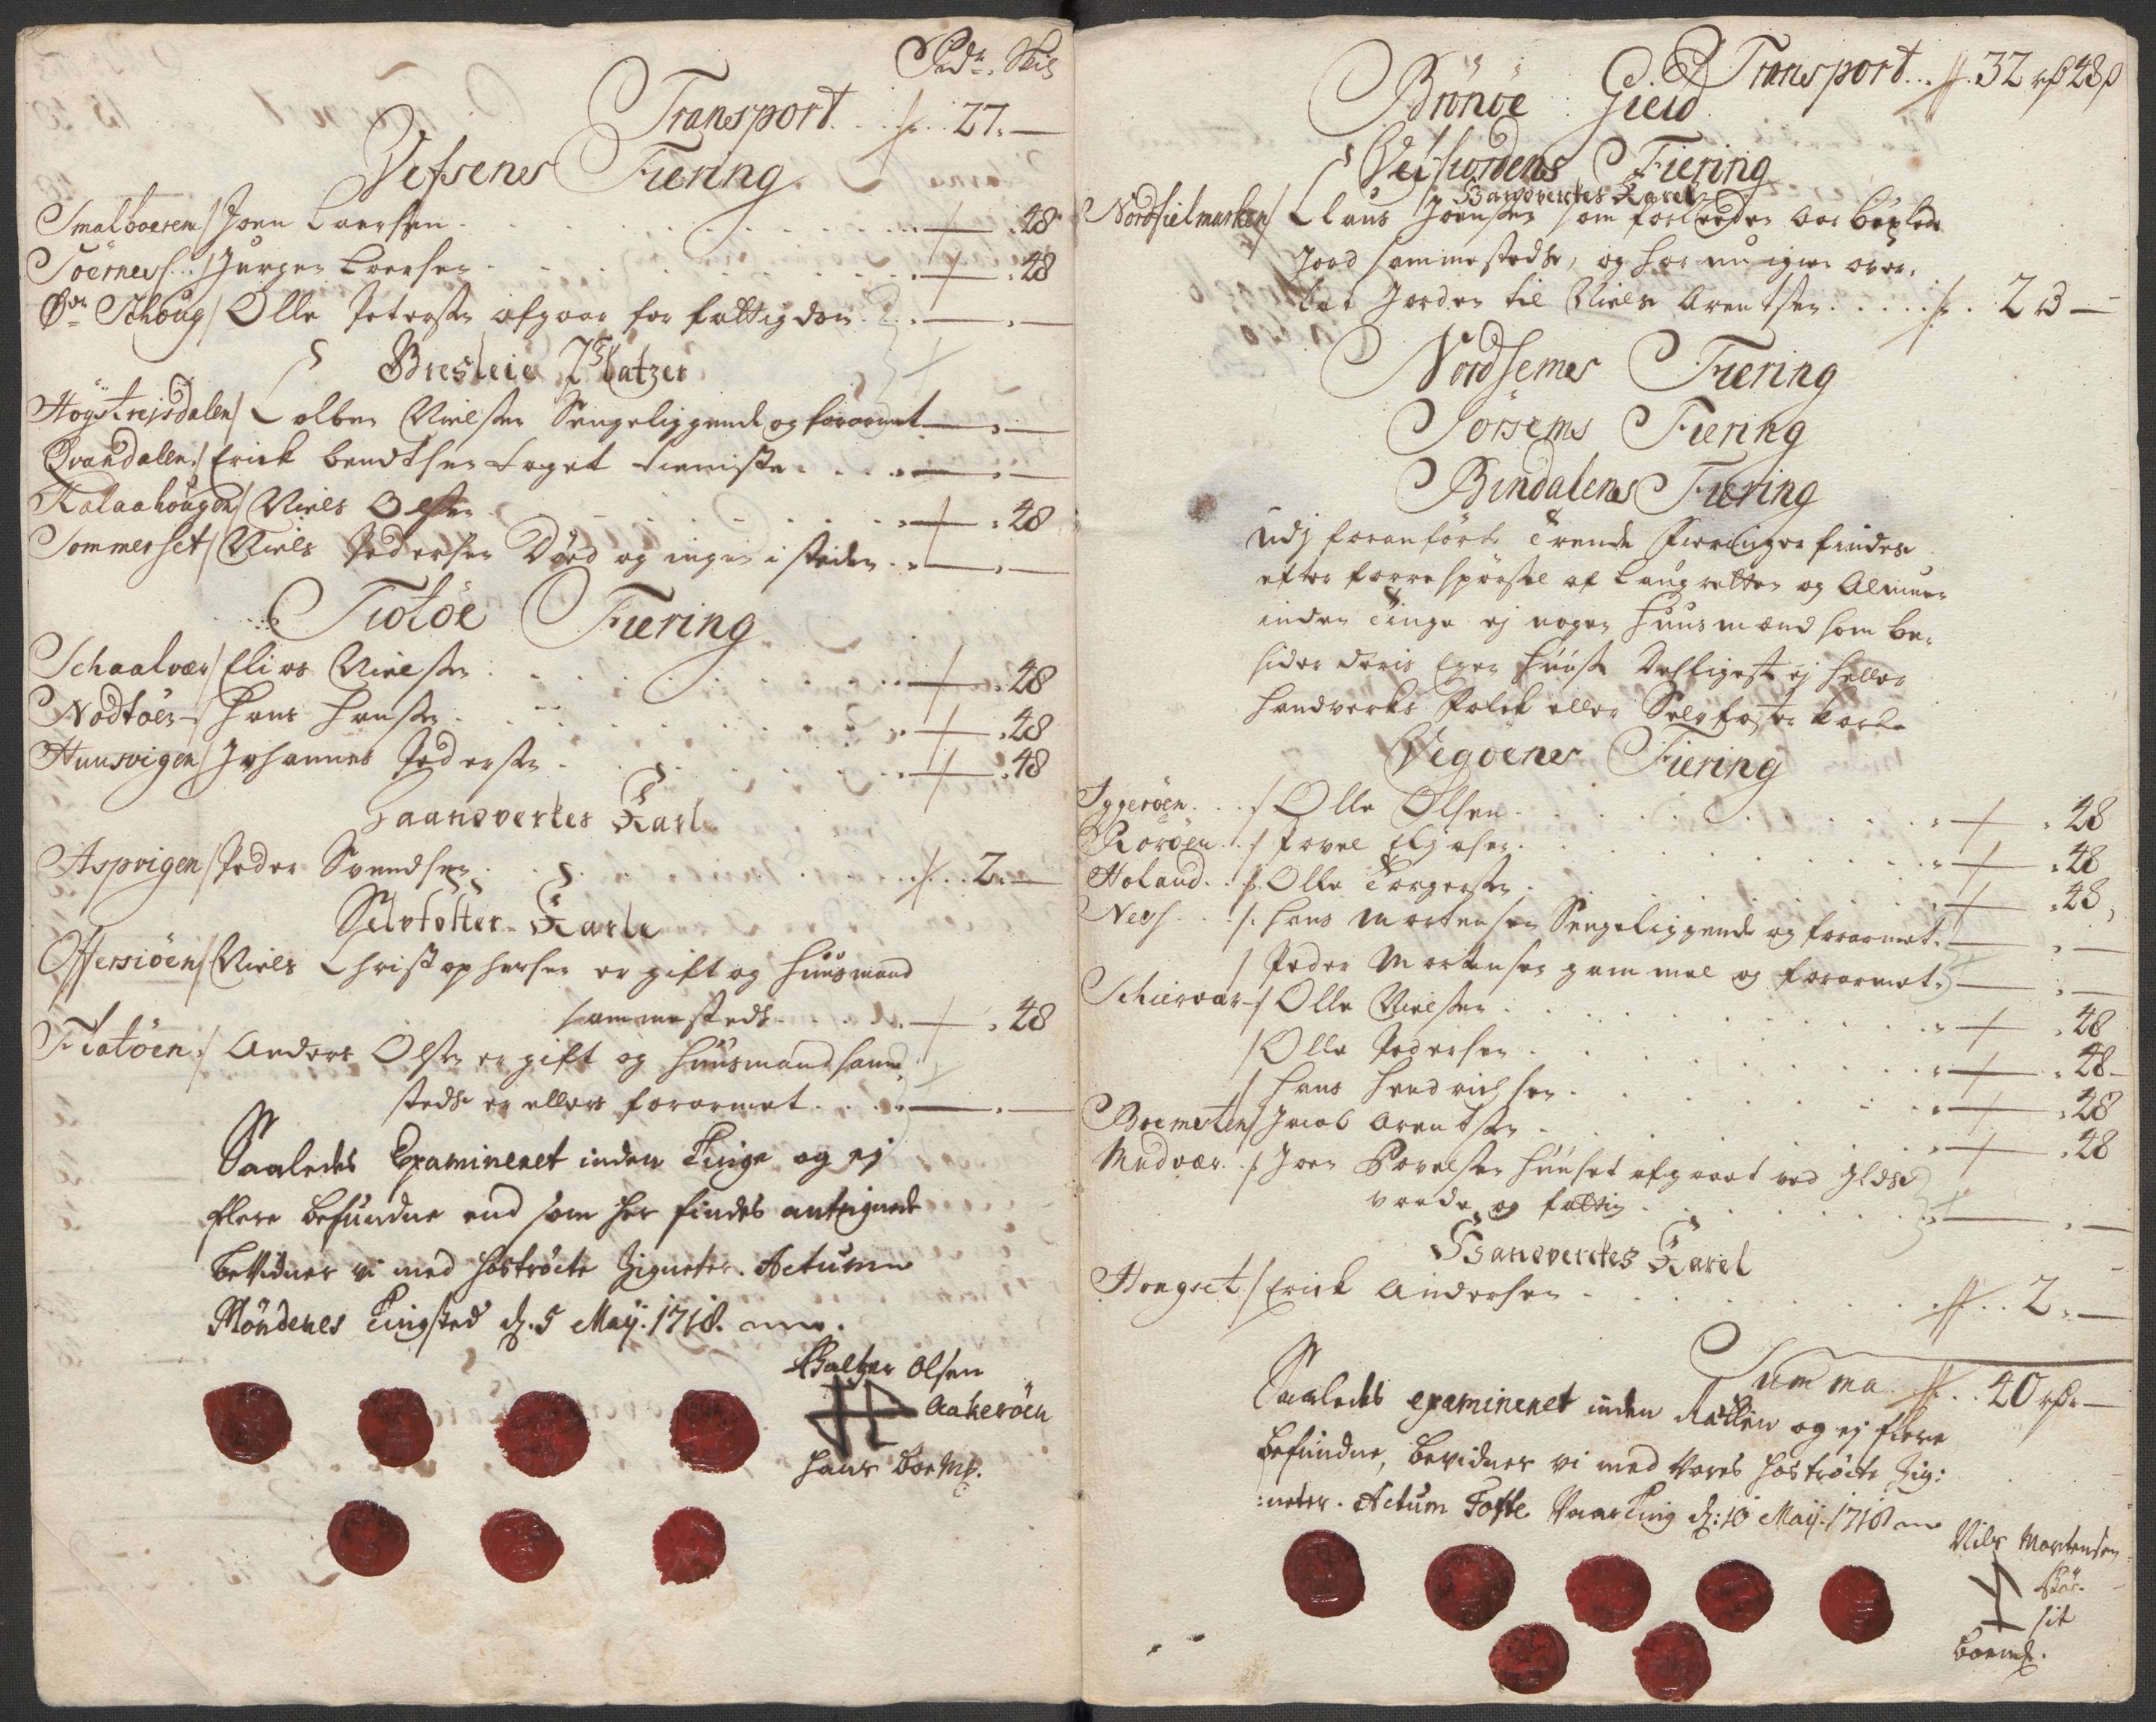 Rdr. Skis
Transport . . . /: . 27. —
Vefsenes Fiering
Smalboeren/ Joen Larsen . . . — . 48
Söernes/ Jurgen Larsen . . . — . 48
Øvr Schoug/ Olle Peterssen afgaar for fattigdom . — . —
Øresleie Platzer
Høystrejsdalen/ Colben Nielssen Sengeliggende og forarmet — . —
Qvandalen/ Erick bendtsen taget tienniste . . — . —
Kalaahougen/ Niels Olssen . . . — . 48
Sommerset/ Niels Pedersen Død og ingen i steden . — . —
Tiotöe Fiering
Schaalvær/ Elias Nielssen . . . — . 48
Nodtöen/ Hans Hanssen . . . — . 48
Huusvigen/ Johannes Pederssen . . . — . 48
Haandverkes Karl
Aspvigen/ Peder Svendsen . . . /: . 2. —
Selvfoster Karle
Offersiöen/ Niels Christophersen er gift og Huusmand
sammesteds . . . — . 48
Flatöen/ Anders Olssen er gift og Huusmand samme
steds er ellers forarmet . . . — . —
Saaledes Examineret inden Tinge og ej
flere befundne end som her findes anteignede
bevidner vi med hoströcte Zigneter. Actum
Möndenes Tingsted d. 5 Maij. 1718.
Baltzer Olsen
Aakeröen
Hans boemk.
Transport . . /: . 32 rß 48 ß
Brönöe Gield
Velfiordens Fiering
Handverckes Karel
Nordfielmarken/ Claus Joenssen som forleeden Aar böxlede
Jord sammestedse, og har nu igien over-
lat Jorden til Niels Arentsen . . . /: . 2 rß —
Nordhemes Fiering
Sörsems Fiering
Bindalens Fiering
Udj foranförte Trende Fieringer findes
efter forrespörssel af Laugretten og Almuen
inden Tinge ej nogen Huusmænd som be-
sider deris Egen Huuse Desligeste ej heller
Handverks folck eller Selvfoster Karle
Vegöenes Fiering
Yggeröen . . / Olle Olsen . . . — . 48
Roröen . . / Povel Elgesen . . . — . 48
Holand . . /: Olle Torgerssen . . . — . 48
Ness . . /: Hans Mortensen Sengeliggende og forarmet . — . —
/ Peder Mortensen gammel og forarmet . — . —
Schiervær / Olle Nielssen . . . — . 48
/ Olle Pedersen . . . — . 48
/ Hans Hendrichsen . . . — . 48
Bremsten/ Jacob Arentssen . . . — . 48
Mudvær . /: Joen Povelssen Huuset afgaaet ved Ildss
vaade og fattig . . . — . —
Handverckes Karel
Hongset / Erick Andersen . . . /: . 2. —
Summa . /: . . 40 rß —
Saaledes examineret inden Retten og ej flere
befundne, bevidner vi med vores hoströcte Zig:
:neter. Actum Tofte Vaar Ting d: 10 Maij. 1718
Nils Mortensen
sit
boemk.